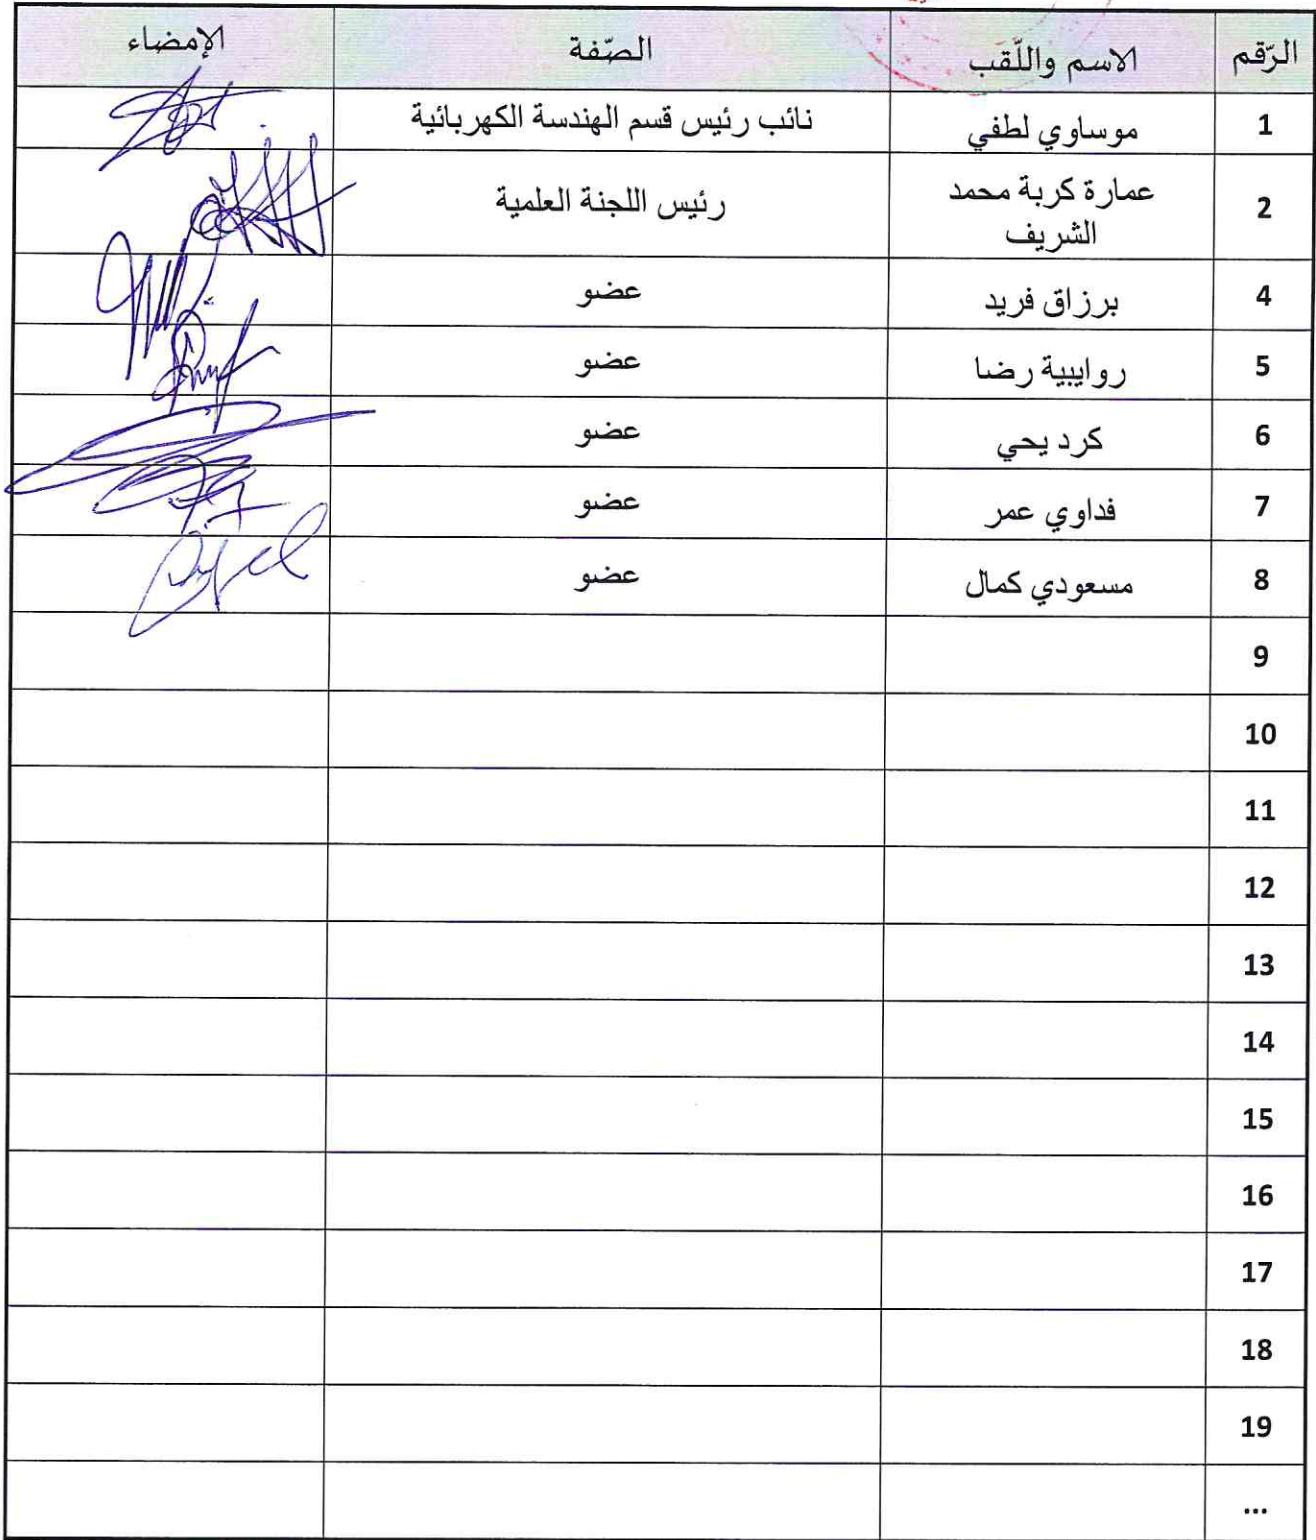 الرّقم الاسم واللّقب الصّفة الإمضاء
1 موساوي لطفي نائب رئيس قسم الهندسة الكهربائية
2 عمارة كربة محمد رئيس اللجنة العلمية
الشريف
4 برزاق فريد عضو
5 روايبية رضا عضو
6 كرد يحي عضو
7 فداوي عمر عضو
8 مسعودي كمال عضو
9
10
11
12
13
14
15
16
17
18
19
...